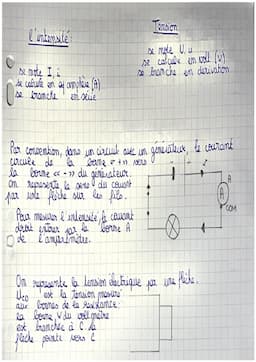 l'intensité :
Tension
se note I, i
se calcule en ampère (A)
se branche en série
se note U, u
se calcule en volt (V)
se branche en dérivation
Par convention, dans un circuit avec un générateur, le courant
circule de la borne « + » vers
la borne « - » du générateur.
On représente le sens du courant
par une flèche sur les fils.
Pour mesurer l'intensité, le courant
doit entrer par la borne A
de l'ampèremètre.
A
A
COM
On représente la tension électrique par une flèche.
est la tension mesurée
aux bornes de la résistance.
La borne V du voltmètre
est branchée à C la
flèche pointe vers C